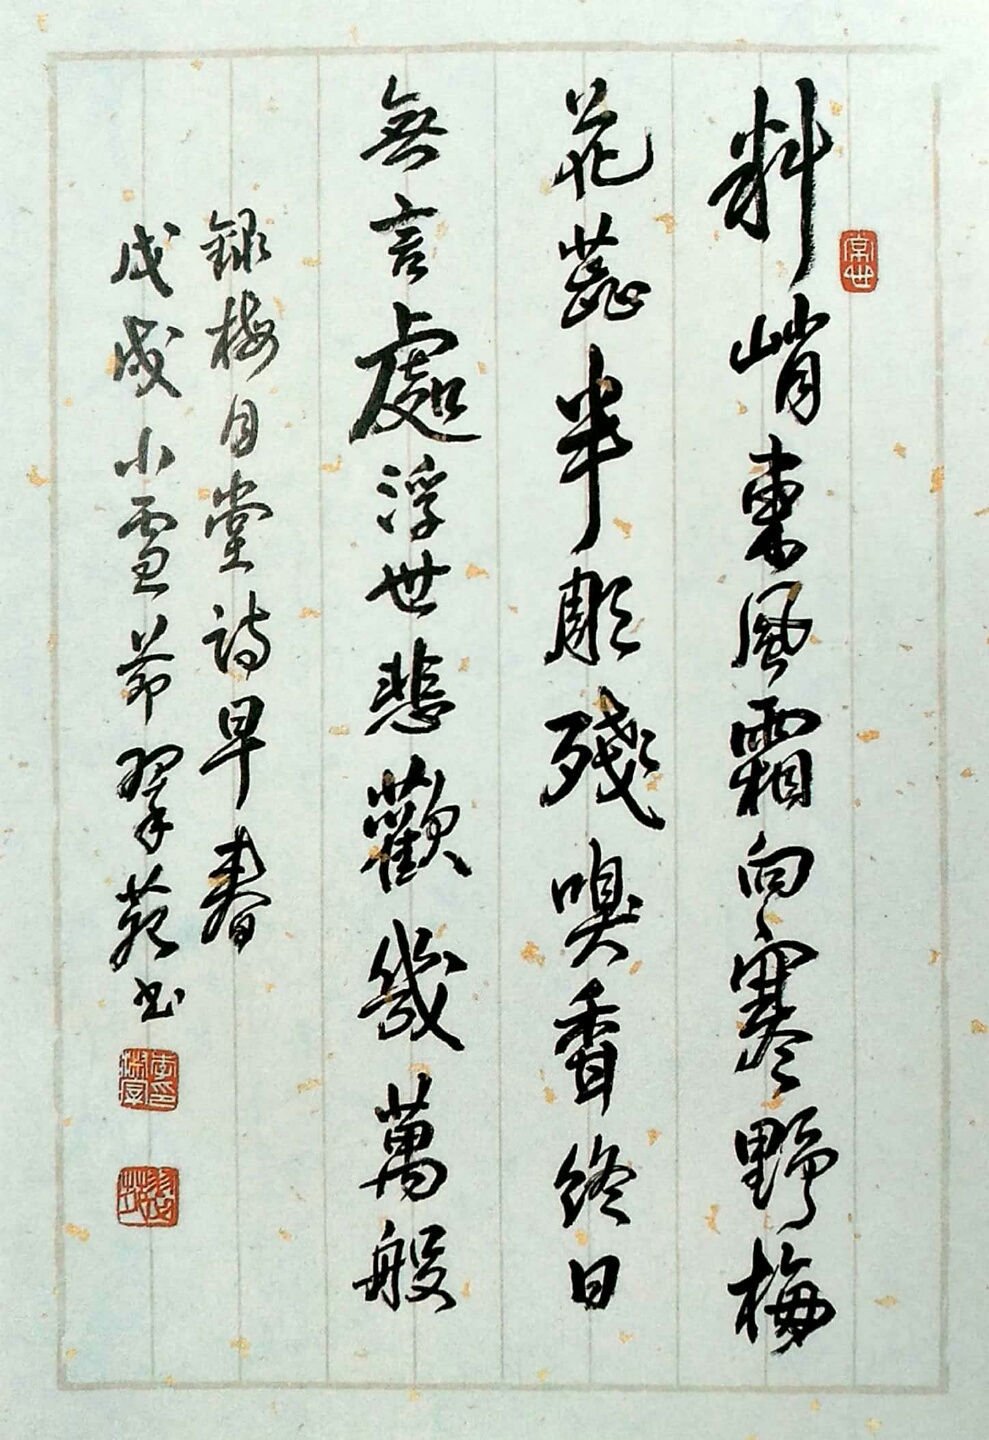 料峭東風霜向寒野梅
花蕊半彫殘嗅香終日
無言處浮世悲歡幾萬般
錄梅月堂詩早春
戊戌小雪節翠苑書